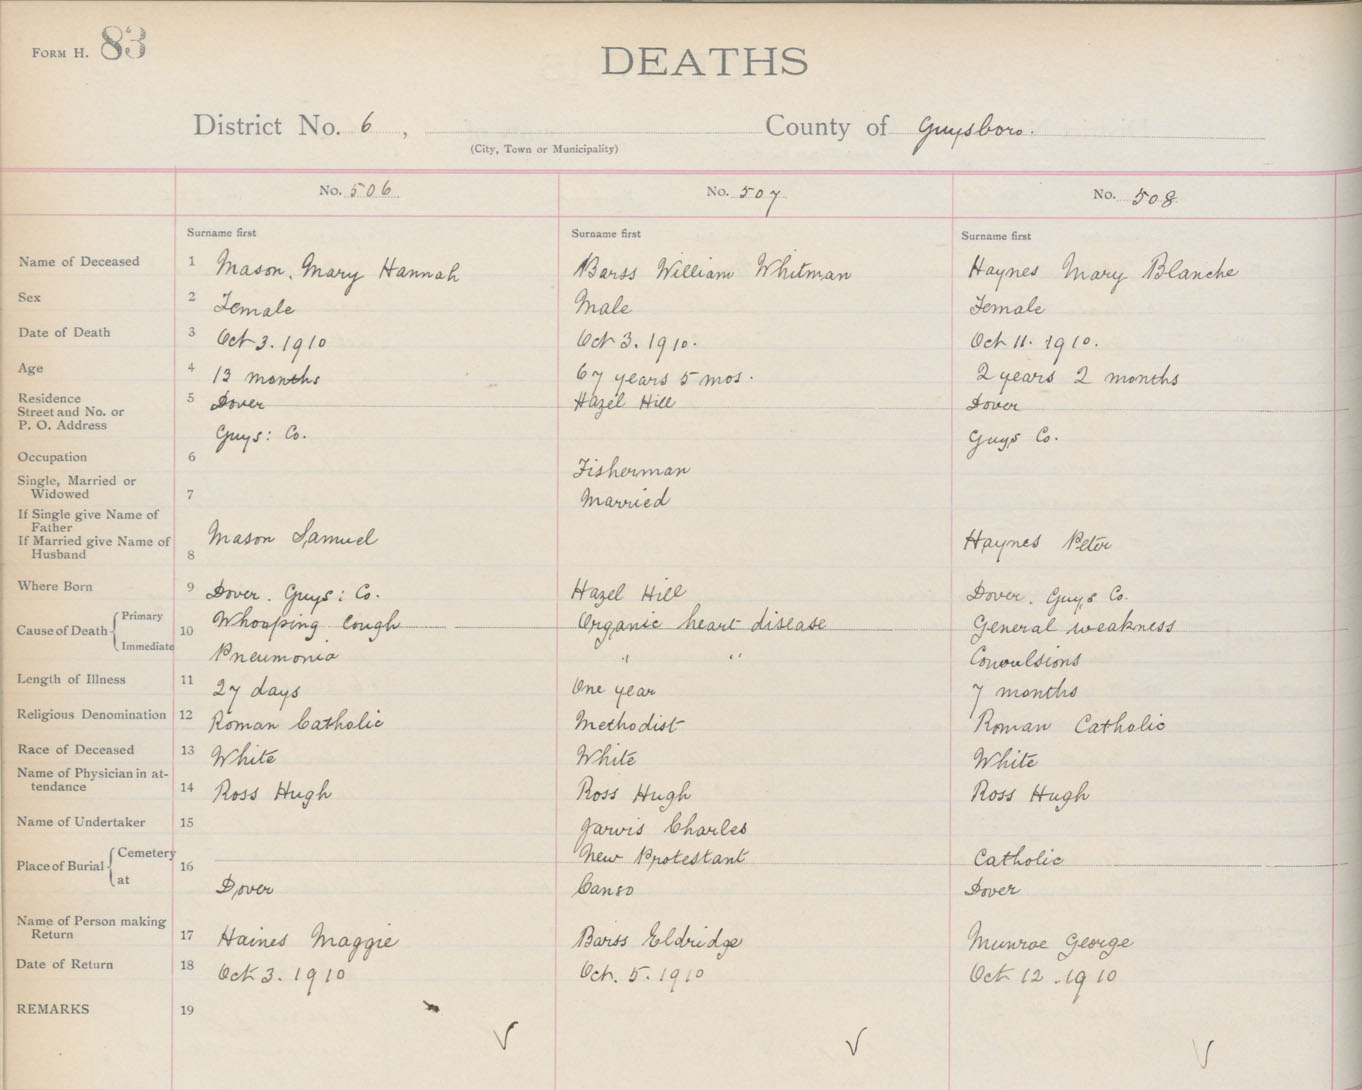 FORM H. 83
DEATHS
District No. 6 , County of Guysboro.
(City, Town or Municipality)
No. 506 No. 507 No. 508
Surname first Surname first Surname first
Name of Deceased 1 Mason, Mary Hannah Barss William Whitman Haynes Mary Blanche
Sex 2 Female Male Female
Date of Death 3 Oct 3. 1910 Oct 3. 1910. Oct 11. 1910.
Age 4 13 months 67 years 5 mos. 2 years 2 months
Residence 5 Dover Hazel Hill Dover
Street and No. or
P. O. Address Guys: Co. Guys Co.
Occupation 6 Fisherman
Single, Married or
Widowed 7 Married
If Single give Name of
Father
If Married give Name of Mason Samuel Haynes Peter
Husband 8
Where Born 9 Dover. Guys: Co. Hazel Hill Dover. Guys Co.
Cause of Death { Primary 10 Whooping Cough Organic heart disease General weakness
Immediate Pneumonia " " Convulsions
Length of Illness 11 27 days One year 7 months
Religious Denomination 12 Roman Catholic Methodist Roman Catholic
Race of Deceased 13 White White White
Name of Physician in at-
tendance 14 Ross Hugh Ross Hugh Ross Hugh
Name of Undertaker 15 Jarvis Charles
Place of Burial { Cemetery 16 New Protestant Catholic
at Dover Canso Dover
Name of Person making
Return 17 Haines Maggie Barss Eldridge Munroe George
Date of Return 18 Oct 3. 1910 Oct. 5. 1910 Oct 12. 1910
REMARKS 19